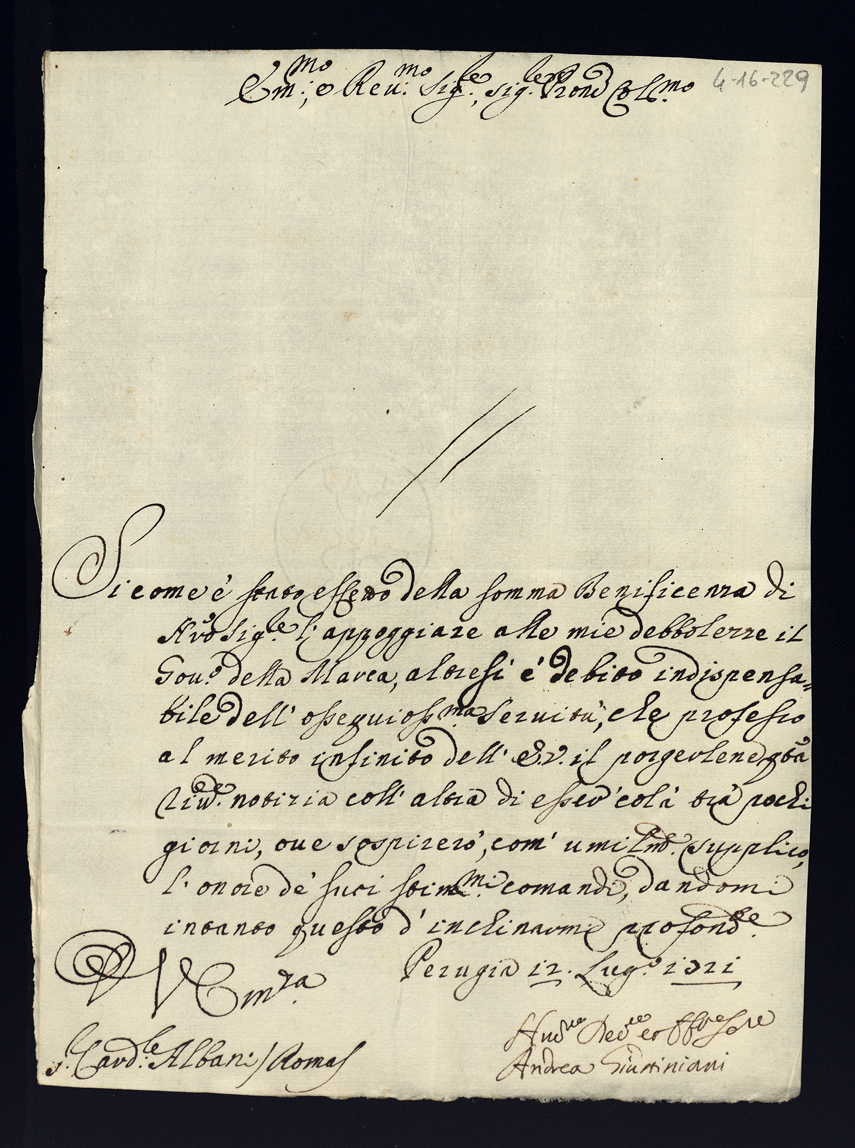 Em.mo, e Reu.mo Sig.re, sig.re Pron Col.mo
4-16-229
Sicome è stato effetto della somma Benificenza di
Nr̃o Sig.re l'appoggiare alle mie debbolezze il
Gou.o della Marca, altresi è debito indispensa=
bile dell'ossequios.ma seruitù, che professo
al merito infinito dell' E.V. il porgerlene q̃ta
riu.e notizia coll'altra di esser' colà trà pochi
giorni, oue sospirerò, com' umilm.e supplico,
l'onore de' suoi stim.mi comandi, dandomi
intanto questo d'inclinarme profond.te
V Em.za
Perugia 12. Lug.o 1721
S.r Card.le Albani / Roma
Andrea Giustiniani